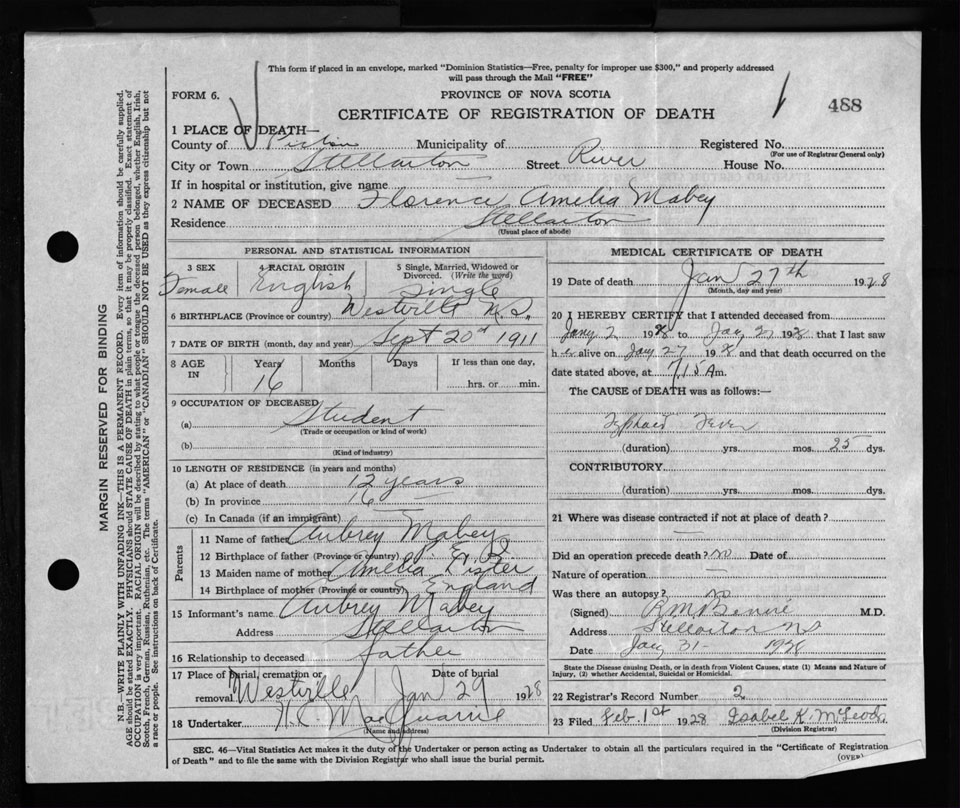 This form if placed in an envelope, marked "Dominion Statistics—Free, penalty for improper use $300," and properly addressed
will pass through the Mail "FREE"
FORM 6.
PROVINCE OF NOVA SCOTIA
CERTIFICATE OF REGISTRATION OF DEATH
488
1 PLACE OF DEATH—
County of Pictou Municipality of Registered No.
(For use of Registrar General only)
City or Town Stellarton Street River House No.
If in hospital or institution, give name
2 NAME OF DECEASED Florence Amelia Mabey
Residence Stellarton
(Usual place of abode)
PERSONAL AND STATISTICAL INFORMATION
3 SEX 4 RACIAL ORIGIN 5 Single, Married, Widowed or Divorced. (Write the word)
Female English Single
6 BIRTHPLACE (Province or country) Westville N.S.
7 DATE OF BIRTH (month, day and year) Sept 20th 1911
8 AGE IN Years Months Days If less than one day,
16 hrs. or min.
9 OCCUPATION OF DECEASED
(a) Student
(Trade or occupation or kind of work)
(b)
(Kind of industry)
10 LENGTH OF RESIDENCE (in years and months)
(a) At place of death 12 years
(b) In province 16
(c) In Canada (if an immigrant)
Parents
11 Name of father Aubrey Mabey
12 Birthplace of father (Province or country) P. E. I.
13 Maiden name of mother Amelia Lister
14 Birthplace of mother (Province or country) England
15 Informant's name Aubrey Mabey
Address Stellarton
16 Relationship to deceased father
17 Place of burial, cremation or removal Westville Date of burial Jan 29 1928
18 Undertaker H C MacQuarrie
(Name and address)
MEDICAL CERTIFICATE OF DEATH
19 Date of death Jan 27th 1928
(Month, day and year)
20 I HEREBY CERTIFY that I attended deceased from
Jany 2 1928 to Jany 27 1928 that I last saw
her alive on Jany 27 1928 and that death occurred on the
date stated above, at 7.15 A m.
The CAUSE of DEATH was as follows:—
Typhoid Fever
(duration) yrs. mos. 25 dys.
CONTRIBUTORY
(duration) yrs. mos. dys.
21 Where was disease contracted if not at place of death?
Did an operation precede death? no Date of
Nature of operation —
Was there an autopsy? no
(Signed) M.D.
Address Stellarton NS
Date Jany 31 - 1928
State the Disease causing Death, or in death from Violent Causes, state (1) Means and Nature of
Injury, (2) whether Accidental, Suicidal or Homicidal.
22 Registrar's Record Number 2
23 Filed Feb. 1st 1928 Isabel K. McLeod
(Division Registrar)
SEC. 46—Vital Statistics Act makes it the duty of the Undertaker or person acting as Undertaker to obtain all the particulars required in the "Certificate of Registration
of Death" and to file the same with the Division Registrar who shall issue the burial permit.
(OVER)
MARGIN RESERVED FOR BINDING
N.B.—WRITE PLAINLY WITH UNFADING INK—THIS IS A PERMANENT RECORD. Every item of information should be carefully supplied.
AGE should be stated EXACTLY. PHYSICIANS should STATE CAUSE OF DEATH in plain terms, so that it may be properly classified. Exact statement of
OCCUPATION is very important. RACIAL ORIGIN will be described by stating to what people or tongue the deceased person belonged, whether English, Irish,
Scotch, French, German, Russian, Ruthenian, etc. The terms "AMERICAN" or "CANADIAN" SHOULD NOT BE USED as they express citizenship but not
a race or people. See instructions on back of Certificate.